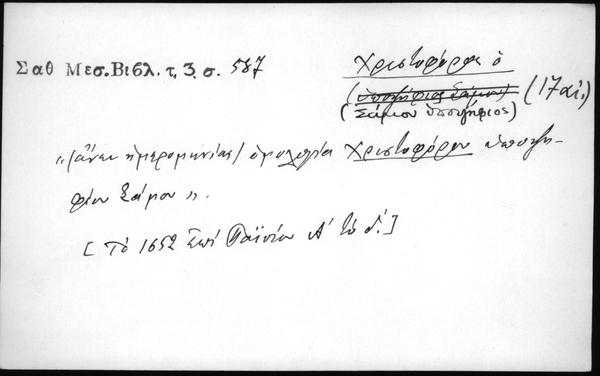 Σαθ Μεσ. Βιβλ. τ. 3 σ. 587
Χριστοφόρος ὁ
(ὑποψήφιος Σάμου) (17 αἰ.)
(Σάμου ὑποψήφιος)
«(ἄνευ ἡμερομηνίας) ὁμολογία Χριστοφόρου ὑποψη-
φίου Σάμου».
[Τὸ 1652 ἐπὶ Παϊσίου Α΄ τὸ δ΄.]